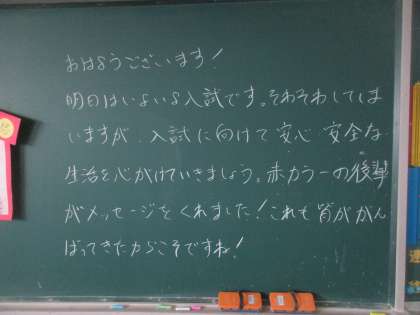 おはようございます!
明日はいよいよ入試です。そわそわしてしま
いますが、入試に向けて安心・安全な
生活を心がけていきましょう。赤カラーの後輩
がメッセージをくれました!これも皆ががん
ばってきたからこそですね!